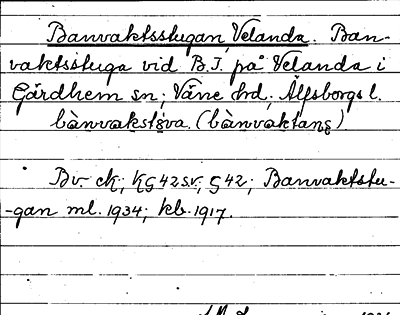 Banvaktsstugan, Velanda. Ban-
vaktsstuga vid B.J. på Velanda i
Gärdhem sn; Väne hd; Älfsborgs l.
bànvakstɵva. (bànvaktans)
Bv. ck; kG42sv; G42; Banvaktstu-
-gan ml. 1934; kb. 1917.